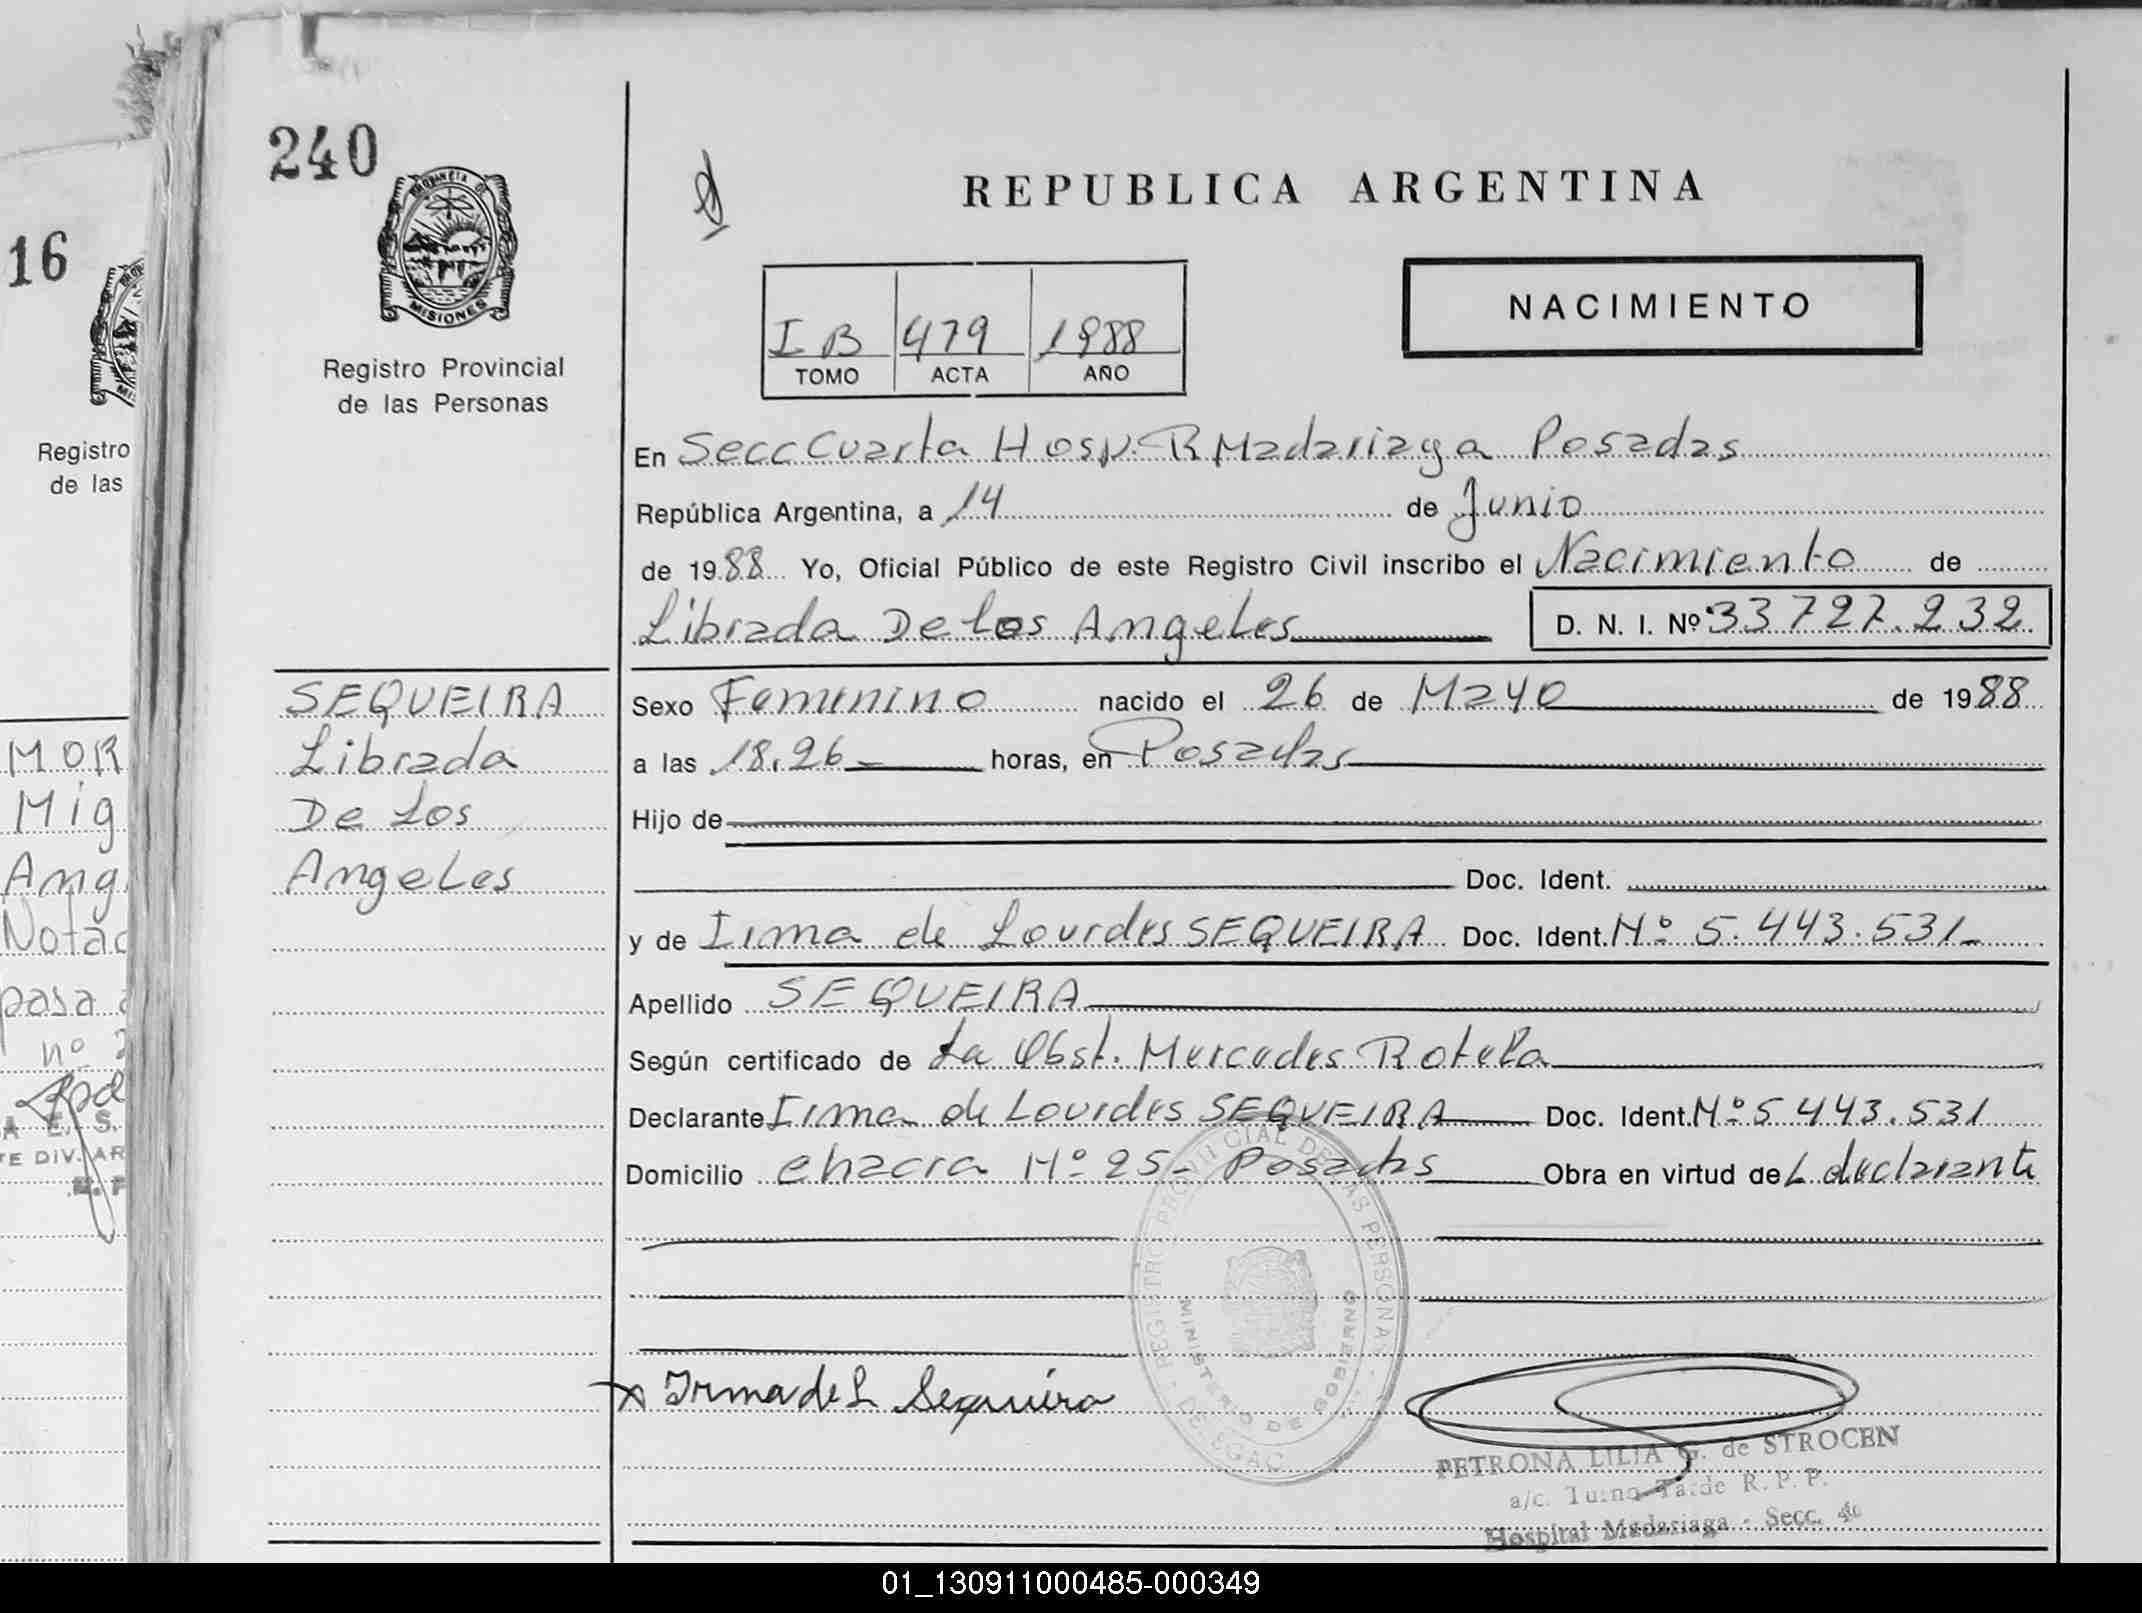 240
PROVINCIA DE
MISIONES
Registro Provincial
de las Personas
SEQUEIRA
Librada
De Los
Angeles
REPUBLICA ARGENTINA
NACIMIENTO
I B 479 1988
TOMO ACTA AÑO
En Secc Cuarta Hosp. R Madariaga Posadas
República Argentina, a 14 de Junio
de 1988 Yo, Oficial Público de este Registro Civil inscribo el Nacimiento de
Librada De los Angeles D. N. I. Nº 33 727.232
Sexo Femenino nacido el 26 de Mayo de 1988
a las 18.26 horas, en Posadas
Hijo de
Doc. Ident.
y de Irma de Lourdes SEQUEIRA Doc. Ident. Nº 5.443.531
Apellido SEQUEIRA
Según certificado de La Obst. Mercedes Rotela
Declarante Irma de Lourdes SEQUEIRA Doc. Ident. Nº 5443.531
Domicilio Chacra Nº 25- Posadas Obra en virtud de L declarante
REGISTRO PROVINCIAL DE LAS PERSONAS
MINISTERIO DE GOBIERNO
DELEGAC
Irma de L Sequeira
PETRONA LILIA G. de STROCEN
a/c. Turno Tarde R. P. P.
Hospital Madariaga - Secc. 4ta
16
Registro
de las
MOR
Mig
Ang
Notac
pasa
nº
E. S.
DIV. AR
01_130911000485-000349